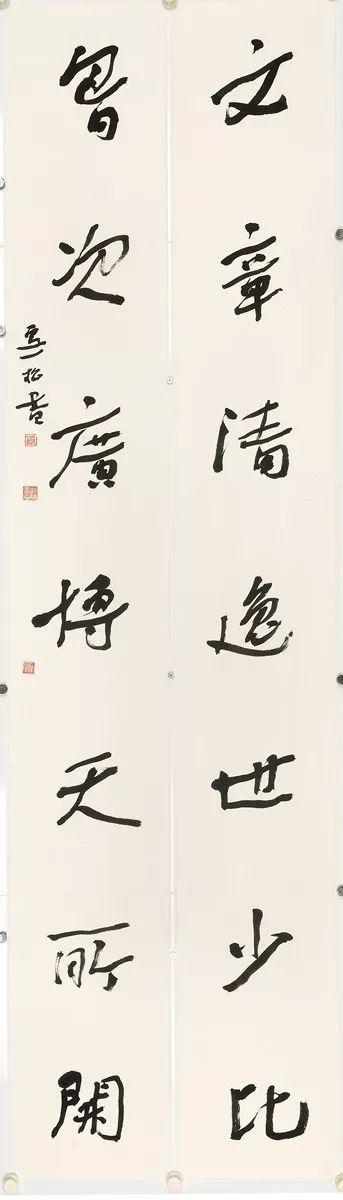 文章清逸世少比
胷次廣博天所開
松書